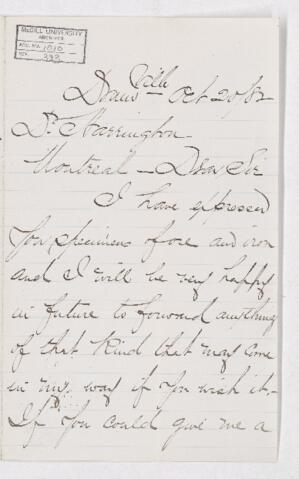 McGILL UNIVERSITY
ARCHIVES
ACC. NO. 1010
REF.
Drumville Oct 20/82
Dr Harrington
Montreal - Dear Sir
I have expressed
you specimens of ore and iron
and I will be very happy
in future to forward anything
of that kind that may come
in my way if you wish it.-
If you could give me a